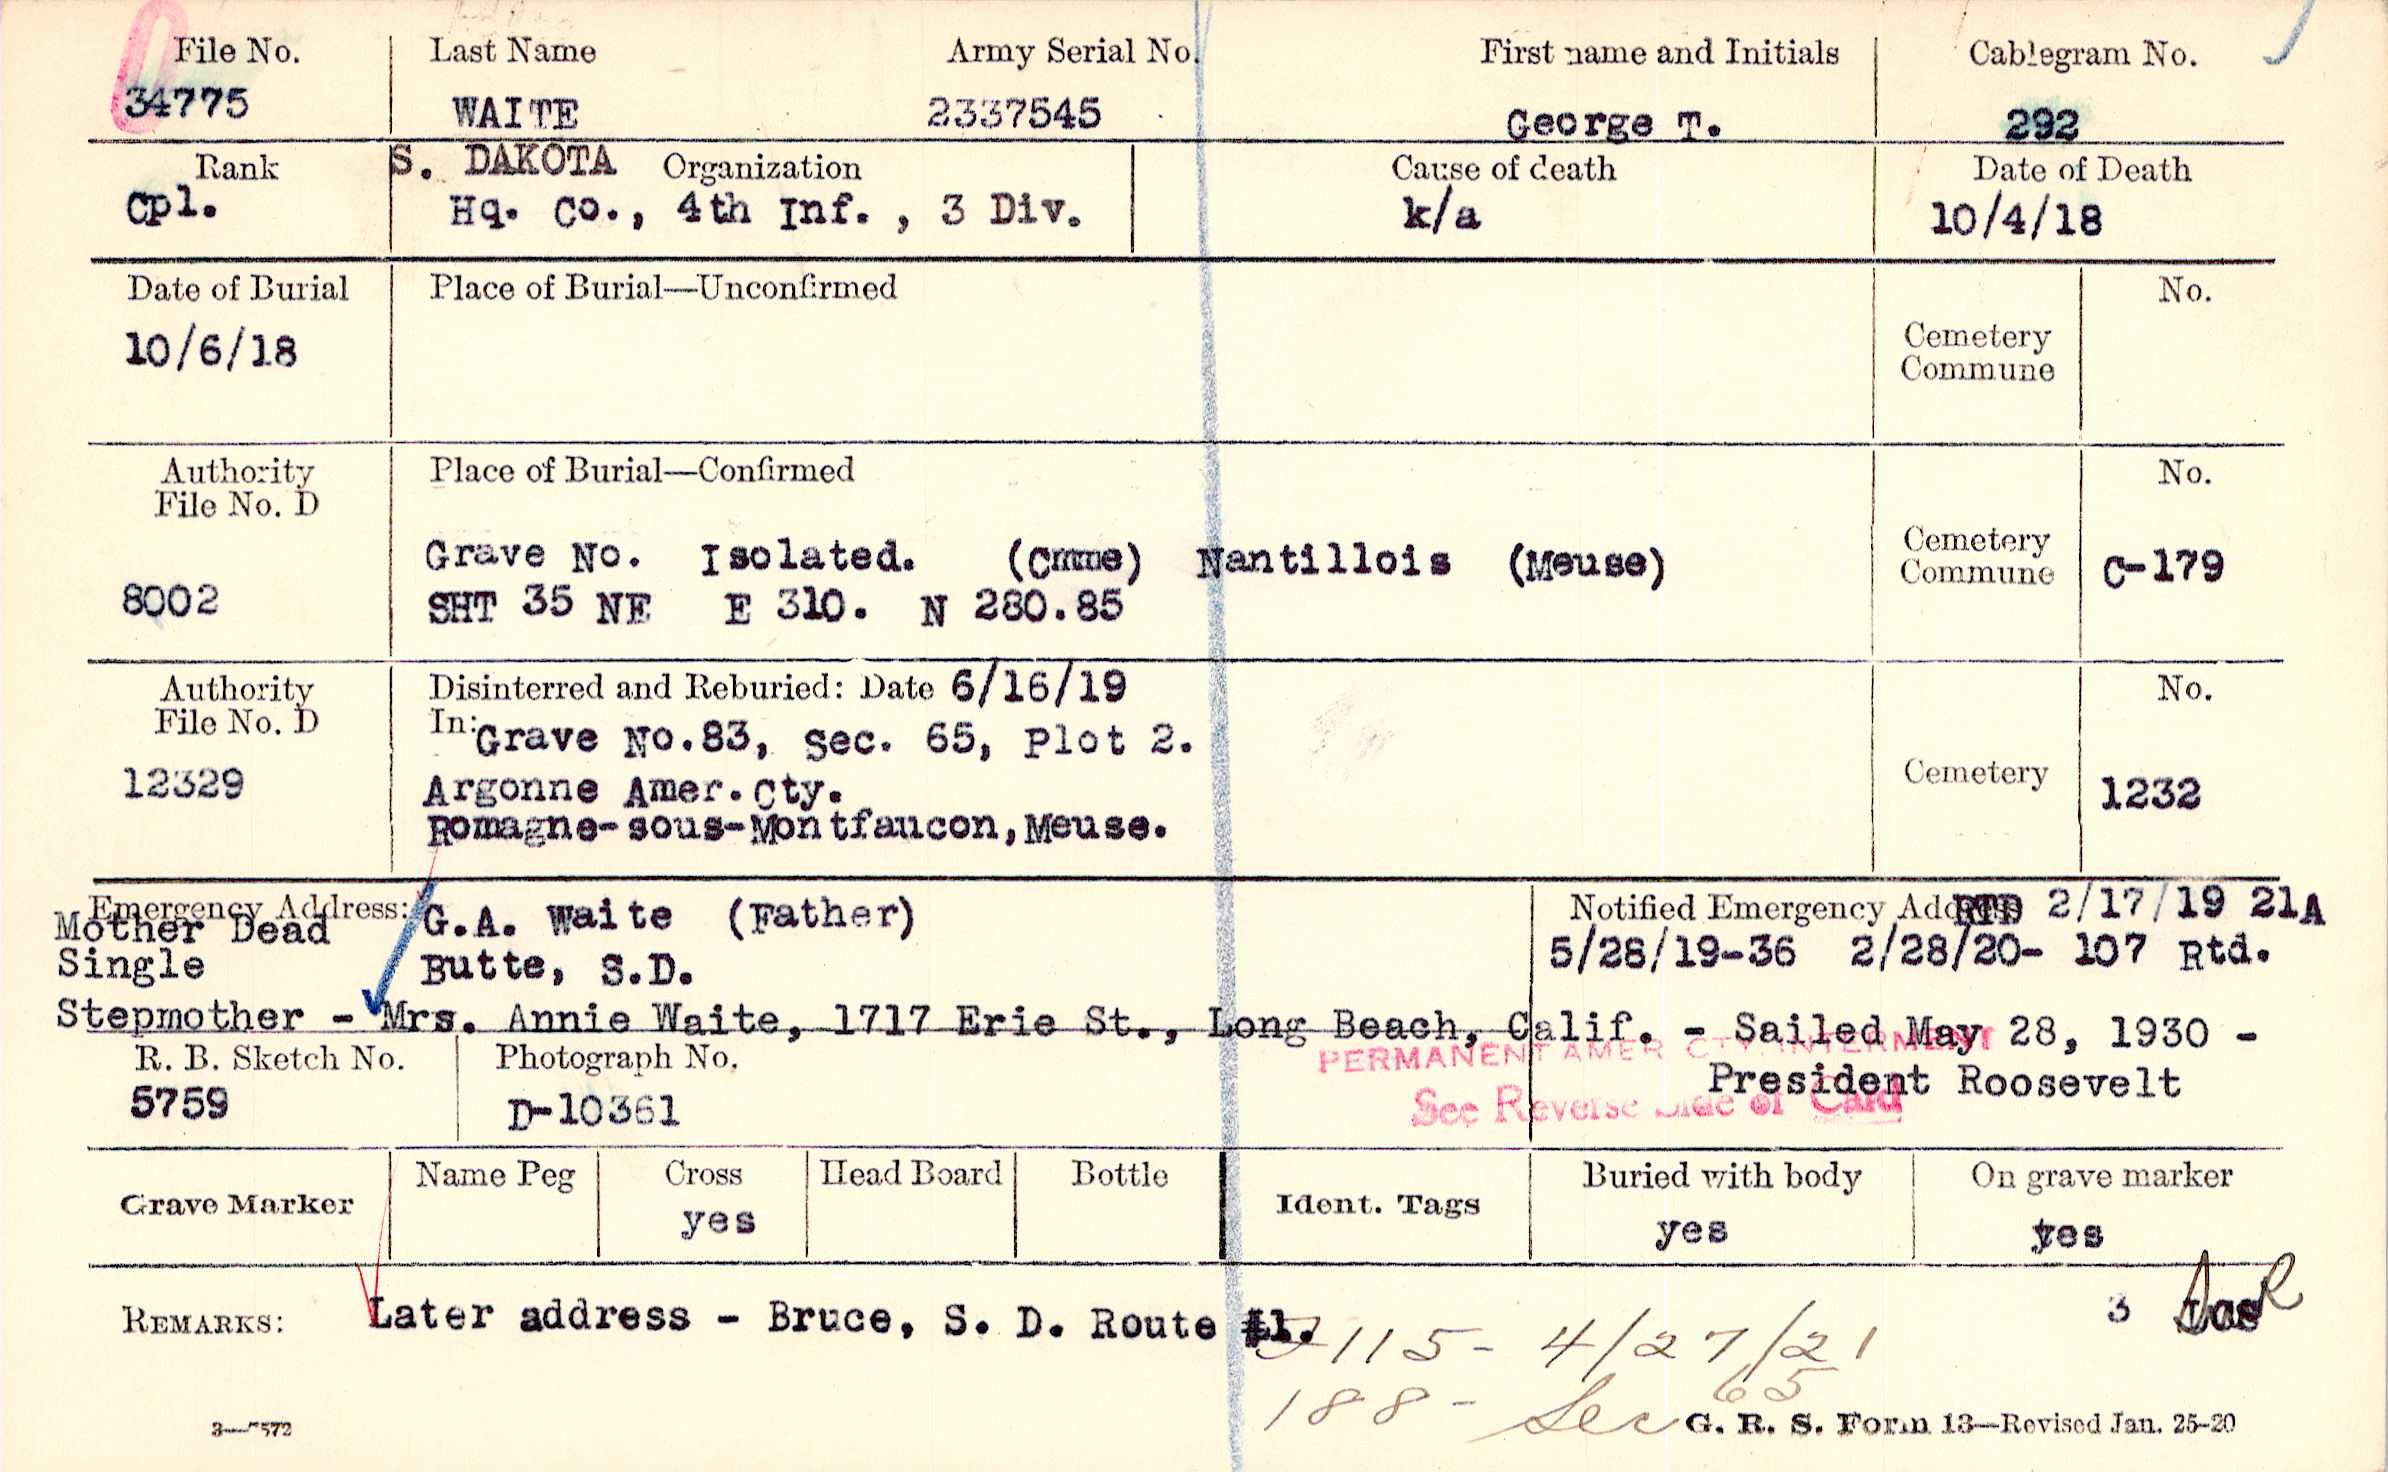 File No. Last Name Army Serial No. First name and Initials Cablegram No.
34775 WAITE 2337545 George T. 292
Rank S. DAKOTA Organization Cause of death Date of Death
Cpl. Hq. Co., 4th Inf., 3 Div. k/a 10/4/18
Date of Burial Place of Burial—Unconfirmed No.
10/6/18 Cemetery
Commune
Authority Place of Burial—Confirmed No.
File No. D
Grave No. Isolated. (Cmme) Nantillois (Meuse) Cemetery
Commune C-179
8002 SHT 35 NE E 310. N 280.85
Authority Disinterred and Reburied: Date 6/16/19 No.
File No. D In: Grave No.83, Sec. 65, Plot 2.
12329 Argonne Amer. Cty. Cemetery 1232
Romagne-sous-Montfaucon, Meuse.
Emergency Address: G.A. Waite (Father) Notified Emergency Address RTD 2/17/19 21A
Mother Dead
Single Butte, S.D. 5/28/19-36 2/28/20- 107 Rtd.
Stepmother - Mrs. Annie Waite, 1717 Erie St., Long Beach, Calif. - Sailed May 28, 1930 -
President Roosevelt
PERMANENT AMER CTY INTERMENT
See Reverse Side of Card
R. B. Sketch No. Photograph No.
5759 D-10361
Grave Marker Name Peg Cross Head Board Bottle Ident. Tags Buried with body On grave marker
yes yes yes
REMARKS: Later address - Bruce, S. D. Route #1. 3
115- 4/27/21
188- Sec 65
3—7572 G. R. S. Form 13—Revised Jan. 25-20